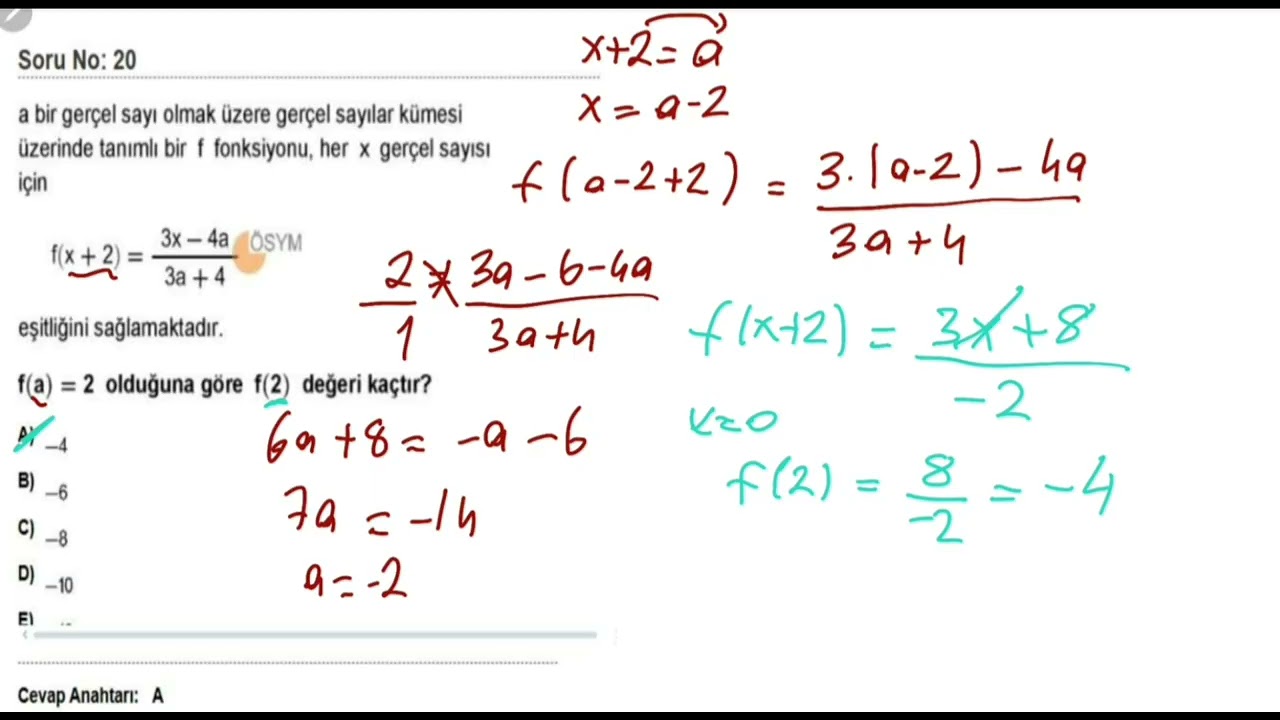 Soru No: 20
a bir gerçel sayı olmak üzere gerçel sayılar kümesi
üzerinde tanımlı bir f fonksiyonu, her x gerçel sayısı
için
f(x + 2) = (3x – 4a)/(3a + 4)
ÖSYM
eşitliğini sağlamaktadır.
f(a) = 2 olduğuna göre f(2) değeri kaçtır?
A) –4
B) –6
C) –8
D) –10
E)
Cevap Anahtarı: A
x+2=a
x = a-2
f(a-2+2) = (3.(a-2)-4a)/(3a+4)
2/1 = (3a-6-4a)/(3a+4)
6a+8 = -a-6
7a = -14
a = -2
f(x+2) = (3x+8)/-2
x=0
f(2) = 8/-2 = -4